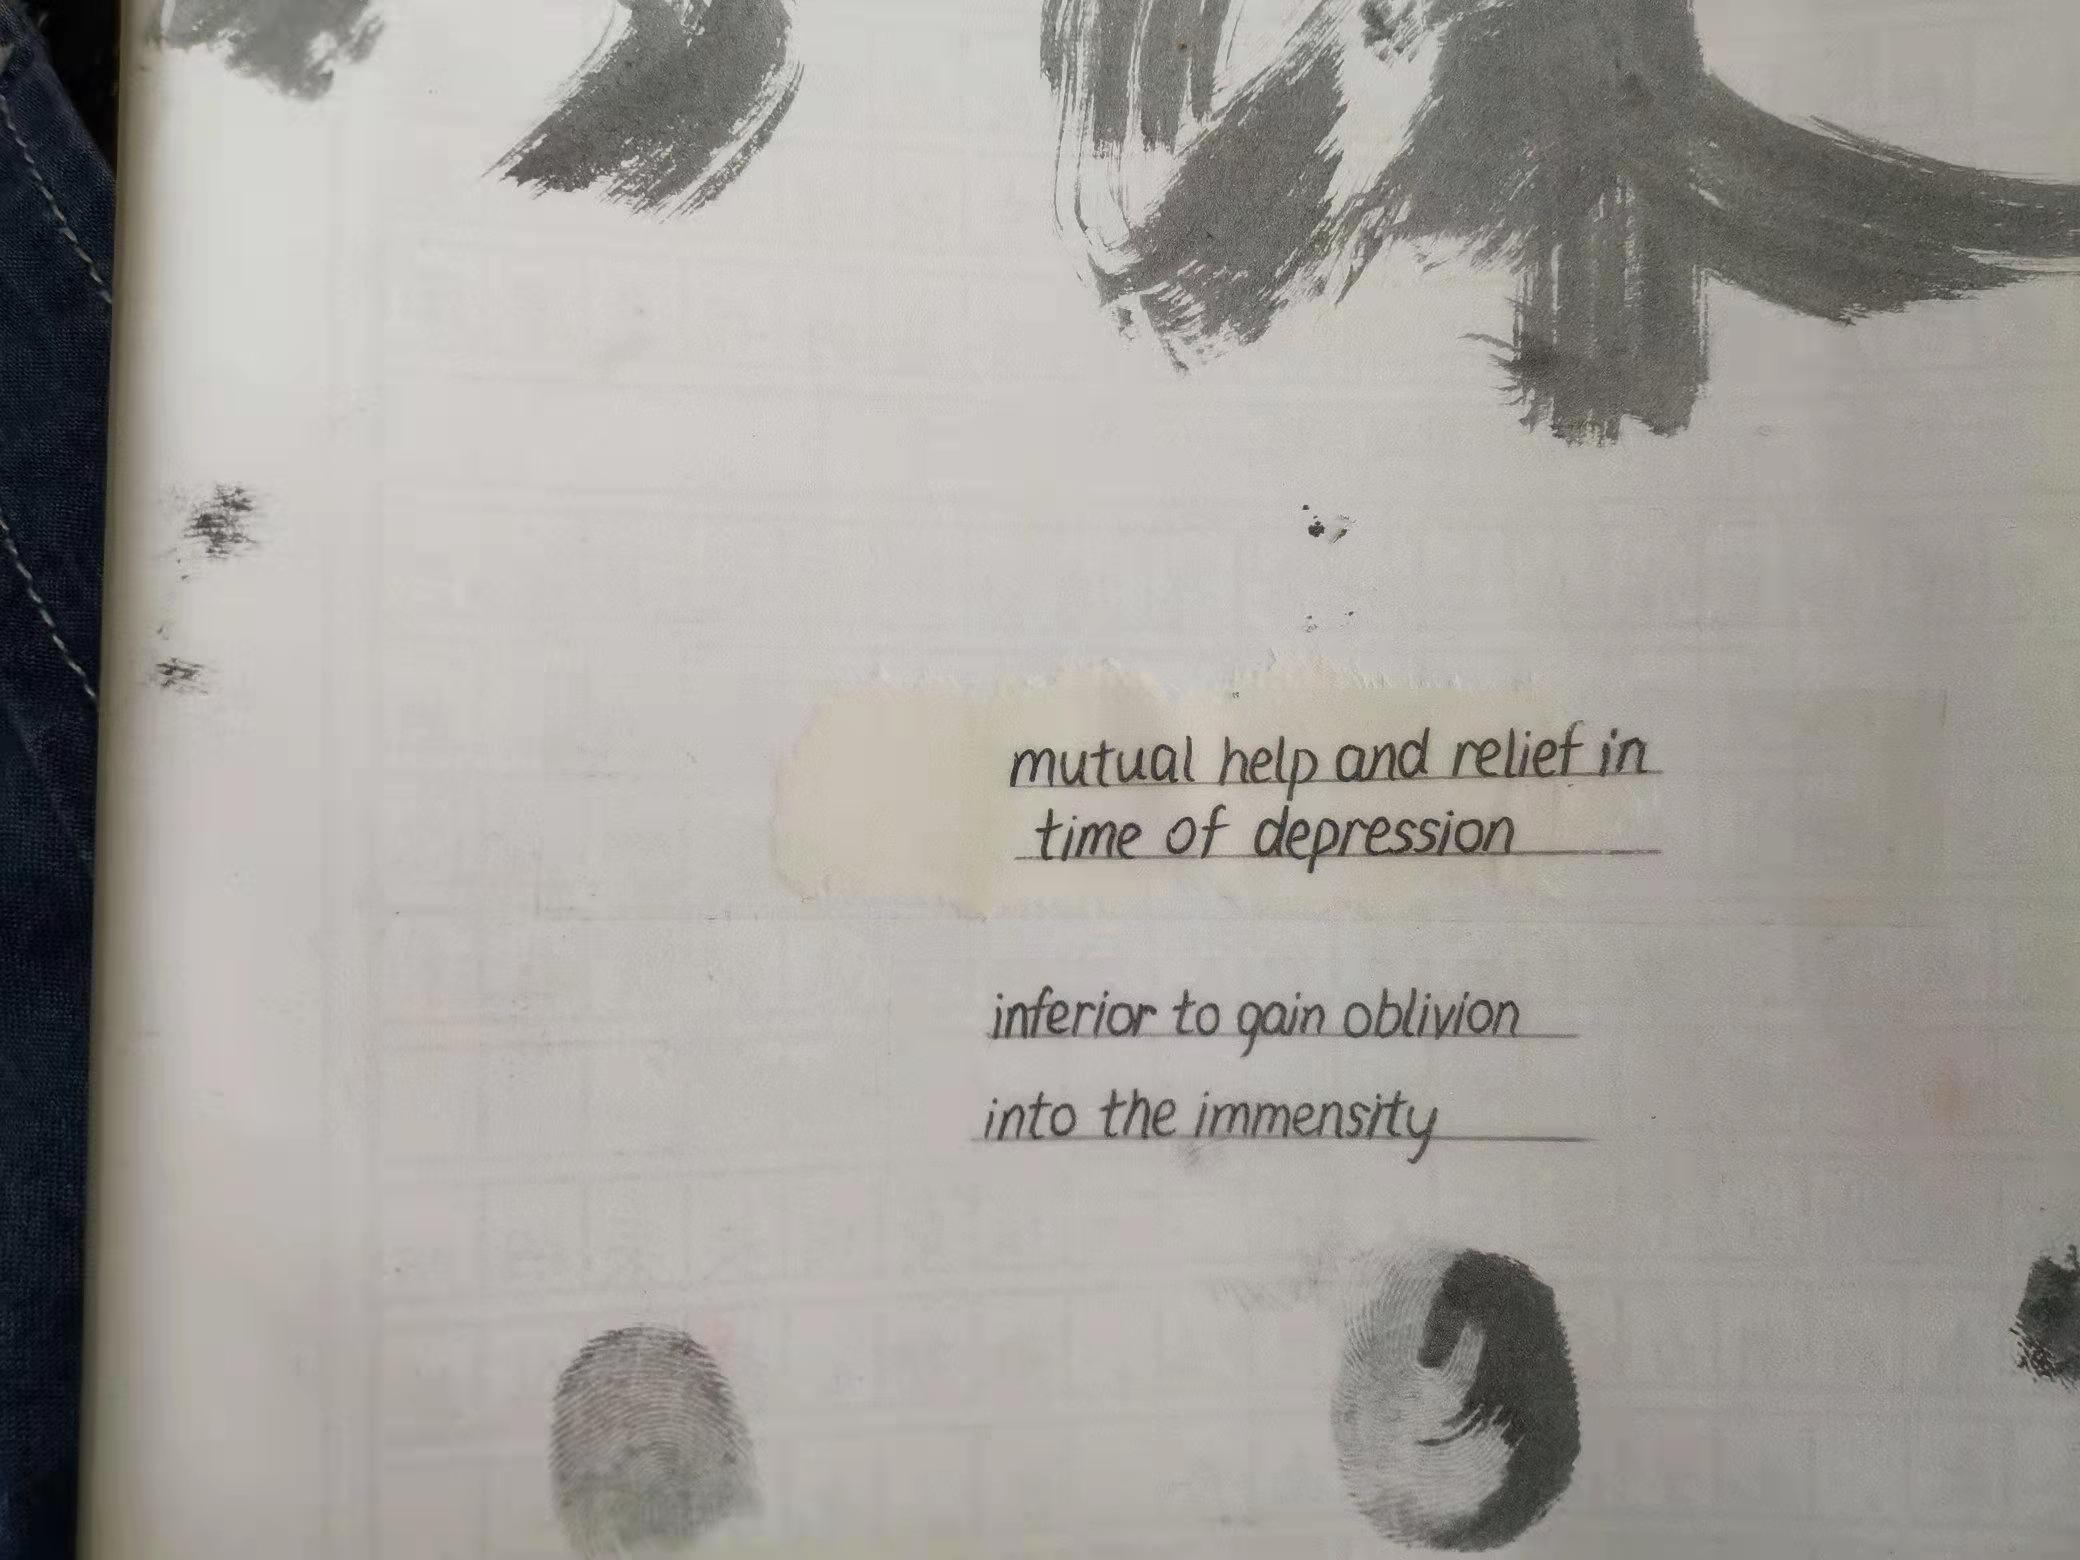 mutual help and relief in
time of depression
inferior to gain oblivion
into the immensity